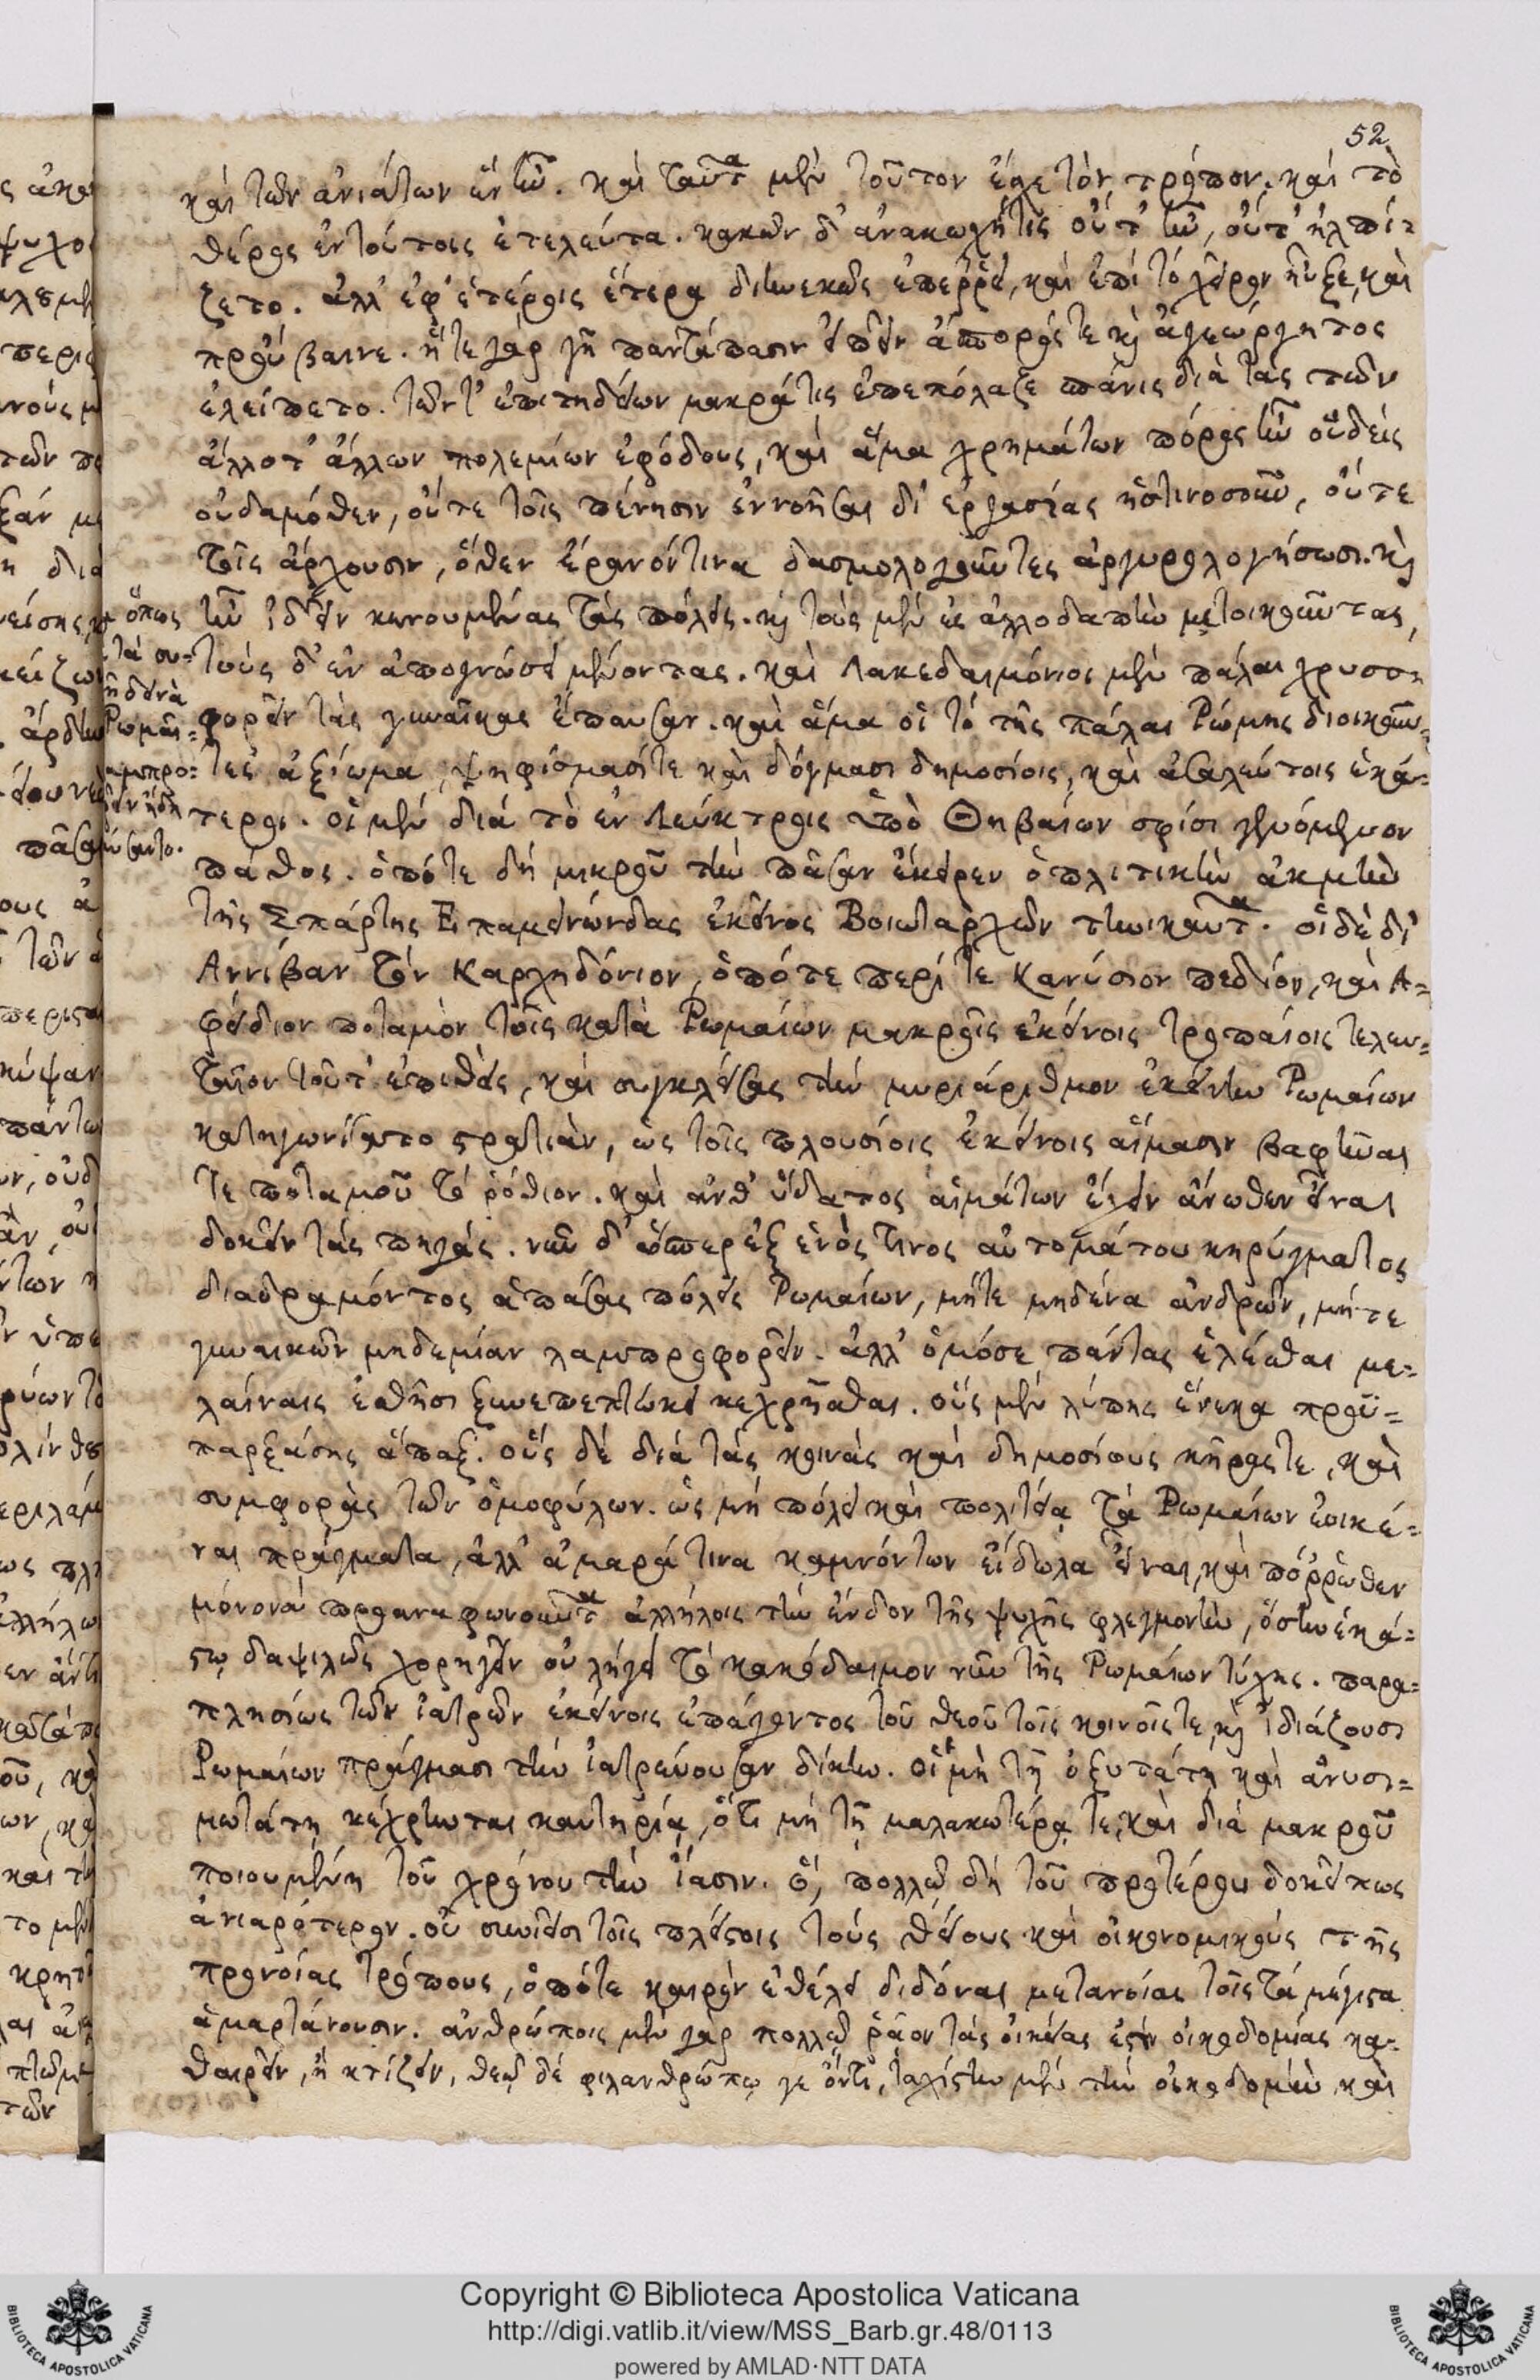 52
καὶ τῶν ἀνιάτων ἐν ἦν. καὶ ταῦτα μὲν τοῦτον εἶχε τὸν τρόπον. καὶ τὸ
θέρος ἐν τούτοις ἐτελεύτα. κακῶν δ' ἀνακωχή τις οὔτ' ἦν, οὔτ' ἠλπί-
ζετο. ἀλλ' ἐφ' ἑτέροις ἕτερα διηνεκῶς ἐπέῤῥει, καὶ ἐπὶ τὸ χεῖρον ηὖξε, καὶ
προὔβαινε. ἥτε γὰρ γῆ παντάπασιν εἰπεῖν ἄσπορός τε καὶ ἀγεώργητος
ἐλείπετο. τῶν τ' ἐπιτηδείων μακρά τις ἐπεπόλαζε σπάνις διὰ τὰς τῶν
ἄλλοτ' ἄλλων πολεμίων ἐφόδους, καὶ ἅμα χρημάτων πόρος ἦν οὐδεὶς
οὐδαμόθεν, οὔτε τοῖς πένησιν ἐννοῆσαι δι' ἐργασίας ἡστινοσοῦν, οὔτε
τοῖς ἄρχουσιν, ὅθεν ἔρανόν τινα δασμολογοῦντες ἀργυρολογήσωσι. καὶ
ἦν ἰδεῖν κενουμένας τὰς πόλεις. καὶ τοὺς μὲν ἐς ἀλλοδαπὴν μετοικοῦντας,
τοὺς δ' ἐν ἀπογνώσει μένοντας. καὶ Λακεδαιμόνιοι μὲν πάλαι χρυσο-
φορεῖν τὰς γυναῖκας ἔπαυσαν. καὶ ἅμα οἱ τὸ τῆς πάλαι Ῥώμης διοικοῦν-
τες ἀξίωμα, ψηφίσμασί τε καὶ δόγμασι δημοσίοις, καὶ ἀσαλεύτοις ἑκά-
τεροι. οἱ μὲν διὰ τὸ ἐν Λεύκτροις ὑπὸ Θηβαίων σφίσι γενόμενον
πάθος. ὁπότε δὴ μικροῦ τὴν πᾶσαν ἔκειρεν ὁπλιτικὴν ἀκμὴν
τῆς Σπάρτης Ἐπαμεινώνδας ἐκεῖνος Βοιωταρχῶν τηνικαῦτα. οἱ δὲ δι'
Ἀννίβαν τὸν Καρχηδόνιον, ὁπότε περί τε Κανύσιον πεδίον, καὶ Α-
φείδιον ποταμὸν τοῖς κατὰ Ῥωμαίων μακροῖς ἐκείνοις τροπαίοις τελευ-
ταῖον τοῦτ' ἐπιθεὶς, καὶ συγκλείσας τὴν μυριάριθμον ἐκείνην Ῥωμαίων
κατηγωνίσατο στρατιὰν, ὡς τοῖς πλουσίοις ἐκείνοις αἵμασιν βαφῆναι
τε ποταμοῦ τὸ ῥόθιον. καὶ ἀνθ' ὕδατος αἱμάτων ἔχειν ἄνωθεν εἶναι
δοκεῖν τὰς πηγάς. νῦν δ' ὥσπερ ἐξ ἑνός τινος αὐτομάτου κηρύγματος
διαδραμόντος ἁπάσας πόλεις Ῥωμαίων, μήτε μηδένα ἀνδρῶν, μήτε
γυναικῶν μηδεμίαν λαμπροφορεῖν. ἀλλ' ὁμόσε πάντας ἑλέσθαι με-
λαίναις ἐσθῆσι ξυνεπεπτώκει κεχρῆσθαι. οὓς μὲν λύπης ἕνεκα προϋ-
παρξάσης ἅπαξ. οὓς δὲ διὰ τὰς κοινὰς καὶ δημοσίους κῆράς τε, καὶ
συμφορὰς τῶν ὁμοφύλων. ὡς μὴ πόλει καὶ πολιτείᾳ τὰ Ῥωμαίων ἐοικέ-
ναι πράγματα, ἀλλ' ἀμαρά τινα καμνόντων εἴδωλα εἶναι, καὶ πόῤῥωθεν
μόνον προαναφωνοῦντα ἀλλήλοις τὴν ἔνδον τῆς ψυχῆς φλεγμονὴν, ὅσην ἑκά-
στῳ δαψιλῶς χορηγεῖν οὐ λήγει τὸ κακόδαιμον νῦν τῆς Ῥωμαίων τύχης. παρα-
πλησίως τῶν ἰατρῶν ἐκείνοις ἐπάγοντος τοῦ θεοῦ τοῖς κοινοῖς τε, καὶ ἰδιάζουσι
Ῥωμαίων πράγμασι τὴν ἰατρεύουσαν δίκην. οἳ μὴ τῇ ὀξυτάτῃ καὶ ἀνυσι-
μωτάτῃ κέχρηνται καυτηρίᾳ, ὅτι μὴ τῇ μαλακωτέρᾳ τε, καὶ διὰ μακροῦ
ποιουμένῃ τοῦ χρόνου τὴν ἴασιν. ὃ, πολλῷ δὴ τοῦ προτέρου δοκεῖ πως
ἀνιαρότερον. οὐ συνιεῖσι τοῖς πλείστοις τοὺς θείους καὶ οἰκονομικοὺς τῆς
προνοίας τρόπους, ὁπότε καιρὸν ἐθέλει διδόναι μετανοίας τοῖς τὰ μέγιστα
ἁμαρτάνουσιν. ἀνθρώποις μὲν γὰρ πολλῷ ῥᾷον τὰς οἰκείας ἐστὶν οἰκοδομίας κα-
θαιρεῖν, ἢ κτίζειν. θεῷ δὲ φιλανθρώπῳ γε ὄντι, ταχίστην μὲν τὴν οἰκοδομὴν καὶ
Copyright © Biblioteca Apostolica Vaticana
http://digi.vatlib.it/view/MSS_Barb.gr.48/0113
powered by AMLAD·NTT DATA
BIBLIOTECA APOSTOLICA VATICANA
BIBLIOTECA APOSTOLICA VATICANA